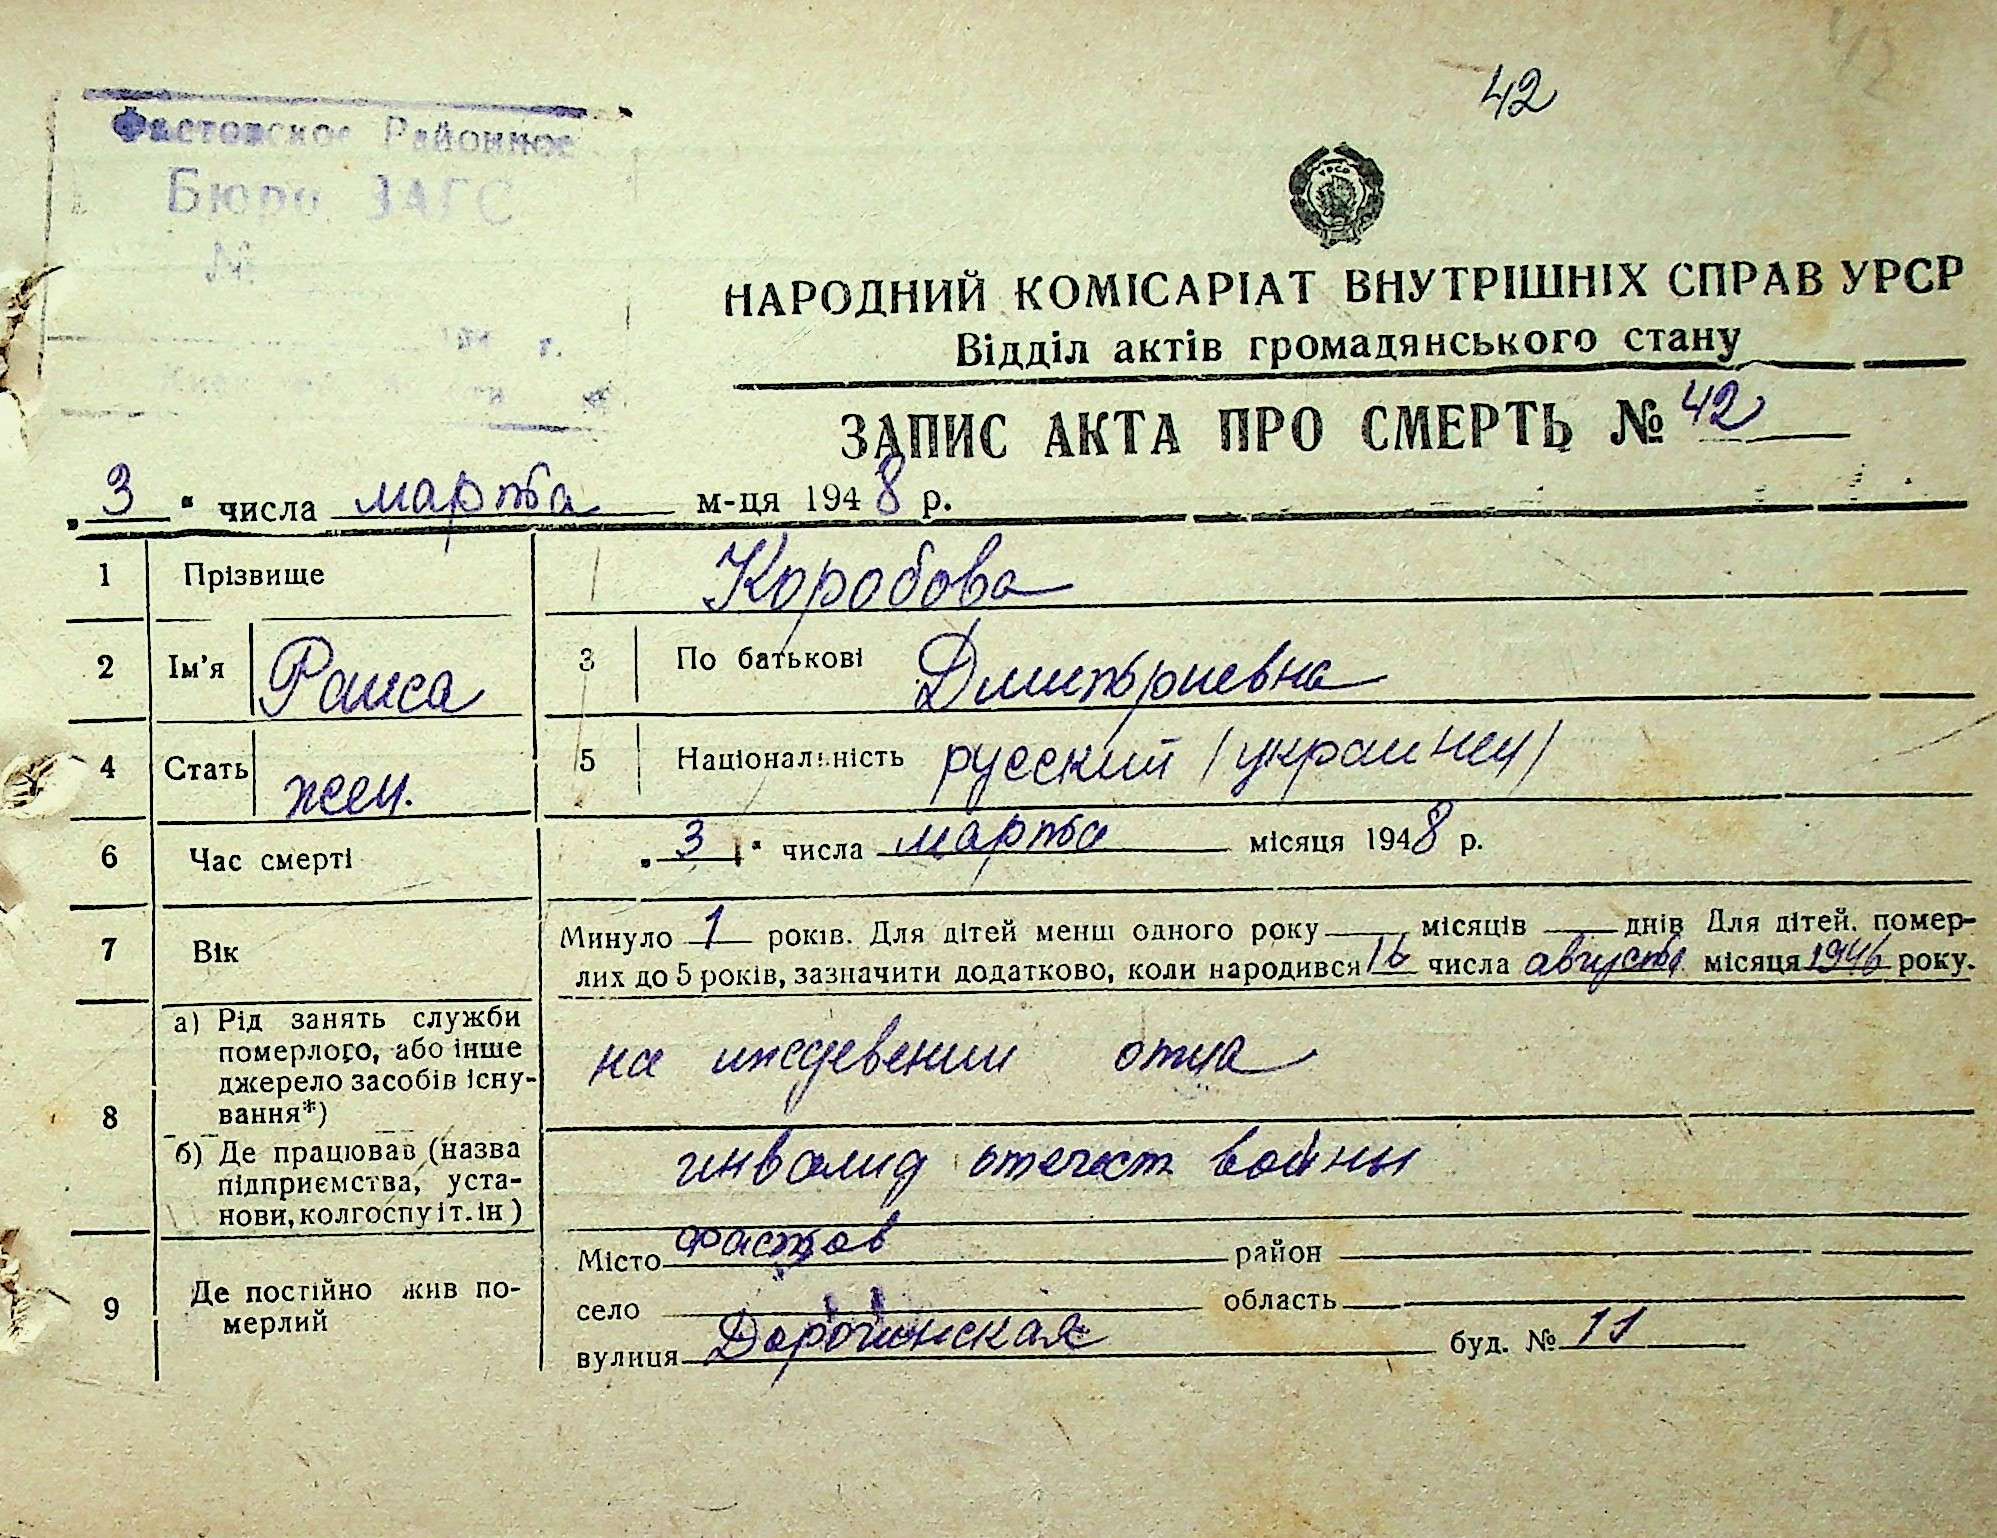 42
Фастовское Районное
Бюро ЗАГС
№
г.
УРСР
НАРОДНИЙ КОМІСАРІАТ ВНУТРІШНІХ СПРАВ УРСР
Відділ актів громадянського стану
ЗАПИС АКТА ПРО СМЕРТЬ № 42
„3“ числа марта м-ця 1948 р.
1 Прізвище Коробова
2 Ім’я Раиса 3 По батькові Дмитриевна
4 Стать жен. 5 Національність русский (украинец)
6 Час смерті „3“ числа марта місяця 1948 р.
7 Вік Минуло 1 років. Для дітей менш одного року місяців днів Для дітей, помер-
лих до 5 років, зазначити додатково, коли народився 16 числа августа місяця 1946 року.
8 а) Рід занять служби
померлого, або інше
джерело засобів існу-
вання*)
на иждевении отца
б) Де працював (назва
підприємства, уста-
нови, колгоспу і т. ін)
инвалид отечест войны
9 Де постійно жив по-
мерлий
Місто Фастов район
село область
вулиця буд. № 11